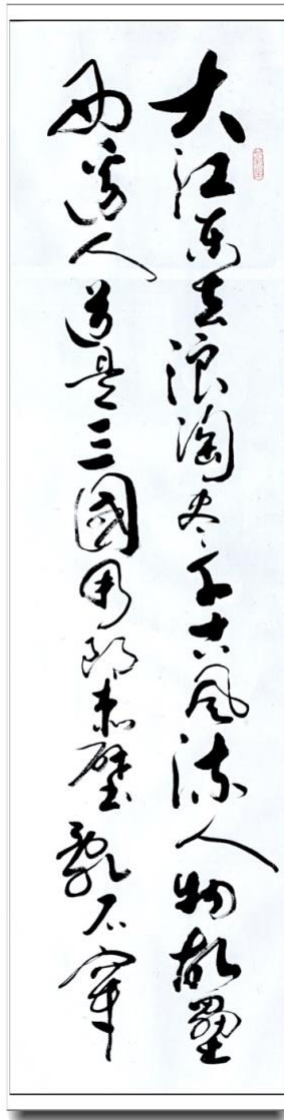 大江东去浪淘尽千古风流人物故垒
西边人道是三國周郎赤壁亂石穿